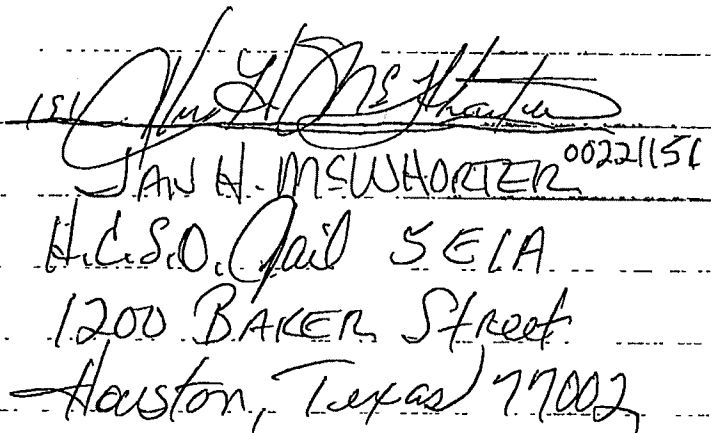 /s/
JAN H. MCWHORTER 00221151
H.C.S.O. Jail 5E1A
1200 BAKER Street
Houston, Texas 77002